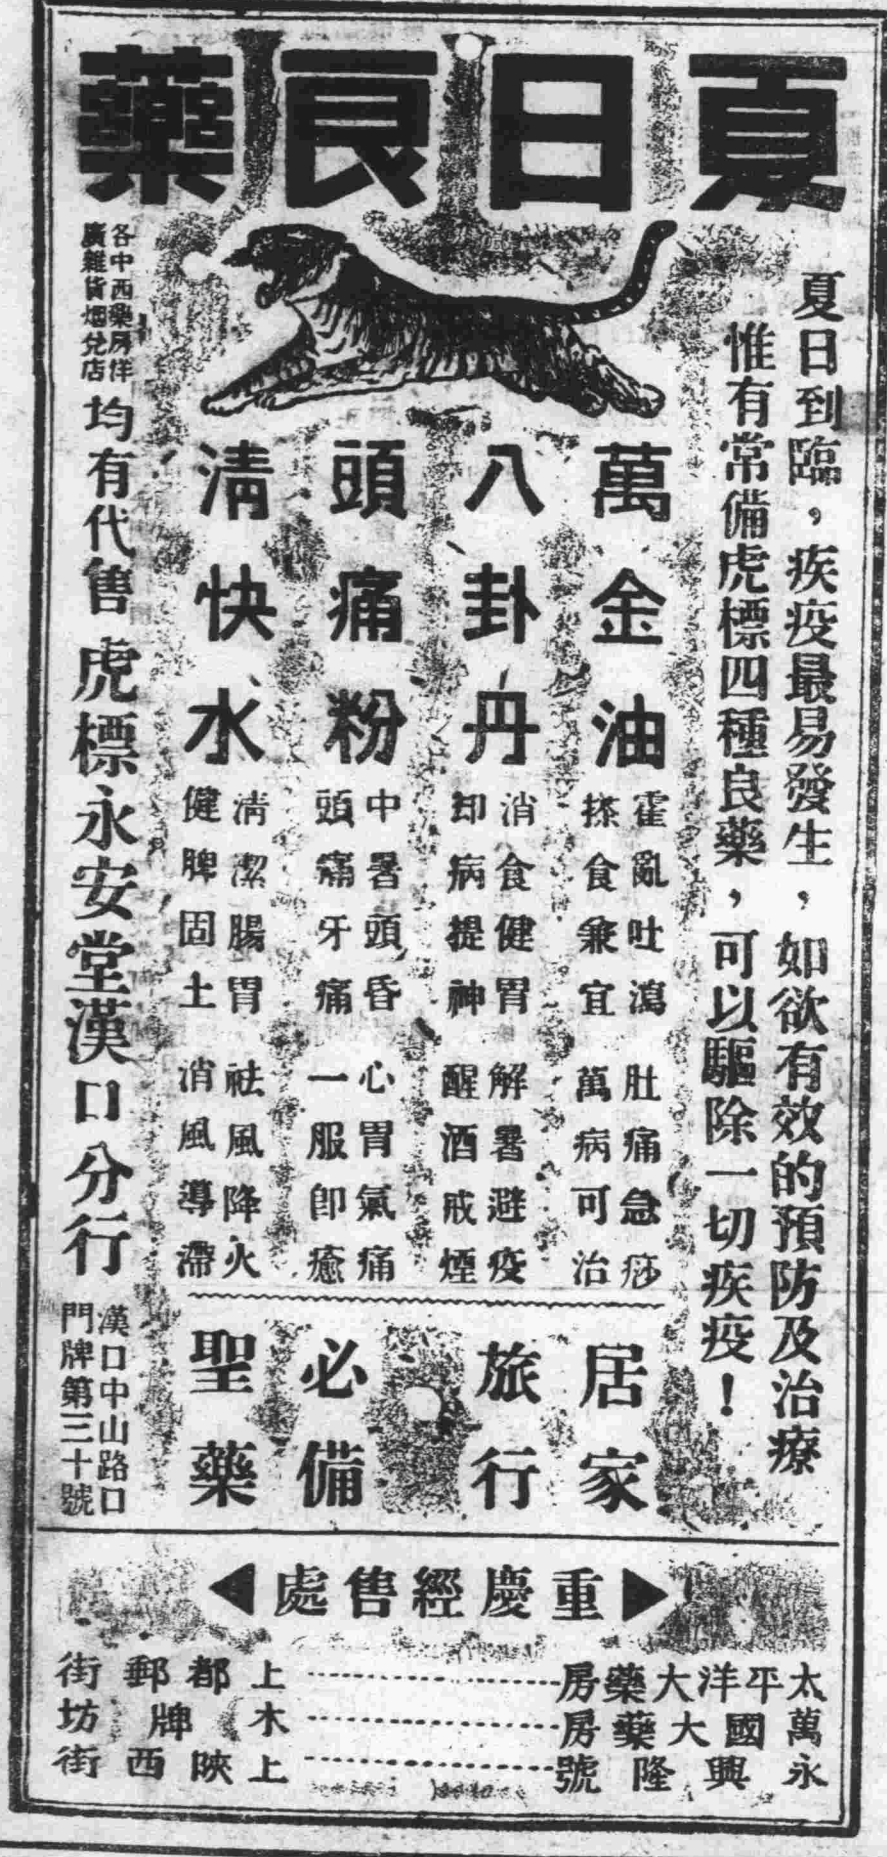 夏日良藥
夏日到臨，疾疫最易發生，如欲有效的預防及治療
惟有常備虎標四種良藥，可以驅除一切疾疫！
萬金油
霍亂吐瀉 肚痛急痧
搽食兼宜 萬病可治
八卦丹
消食健胃 解暑避疫
却病提神 醒酒戒煙
頭痛粉
中暑頭昏 心胃氣痛
頭痛牙痛 一服卽癒
淸快水
淸潔腸胃 祛風降火
健脾固土 消風導滯
居家
旅行
必備
聖藥
各中西藥房洋
廣雜貨烟兌店
均有代售 虎標永安堂漢口分行
漢口中山路口
門牌第三十號
重慶經售處
太平洋大藥房……上都郵街
萬國大藥房……木牌坊
永興隆號……上陝西街